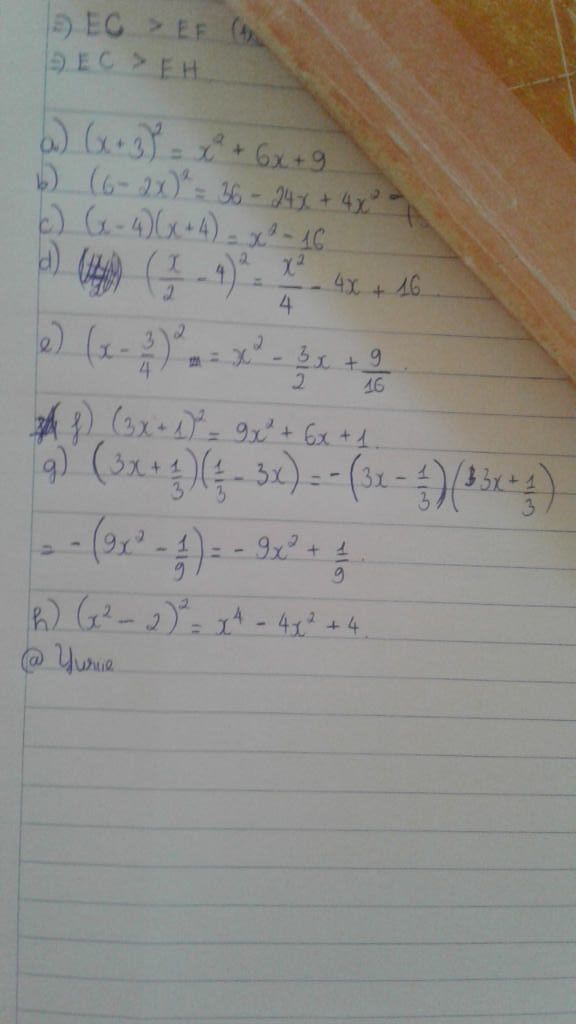 =) EC > EF (1)
=) EC > EH
a) (x+3)² = x² + 6x + 9
b) (6 - 2x)² = 36 - 24x + 4x²
c) (x - 4)(x + 4) = x² - 16
d) (x/2 - 4)² = x²/4 - 4x + 16
e) (x - 3/4)² = x² - 3/2x + 9/16.
f) (3x + 1)² = 9x² + 6x + 1.
g) (3x + 1/3)(1/3 - 3x) = -(3x - 1/3)(3x + 1/3)
= -(9x² - 1/9) = -9x² + 1/9.
h) (x² - 2)² = x⁴ - 4x² + 4.
@ Yurie